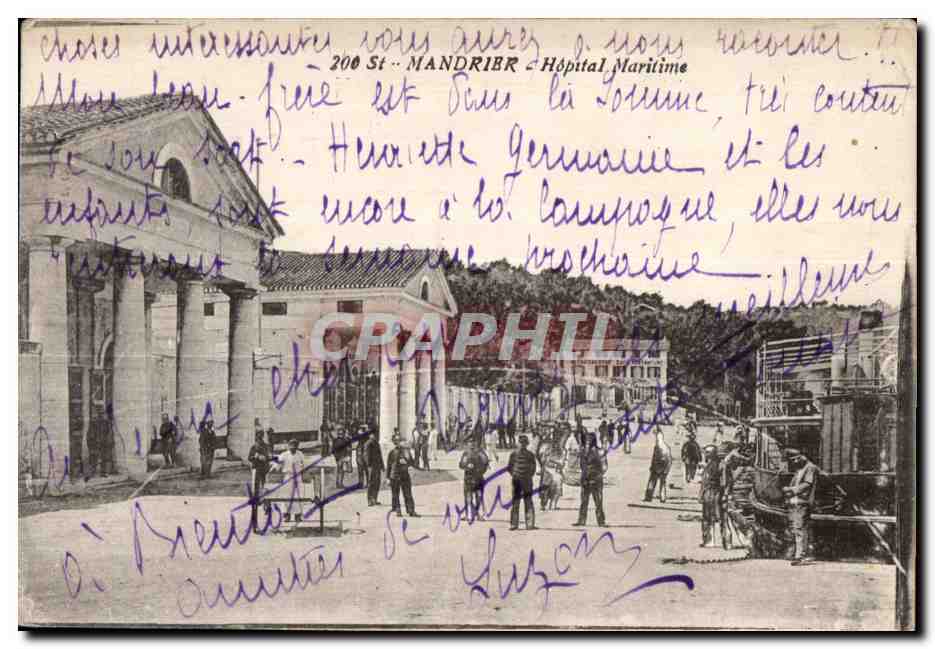 choses interessantes vous aurez à nous raconter !!
200 St - MANDRIER - Hôpital Maritime
Mon beau-frère est dans la Somme, très content
de son sort. - Henriette Germaine et les
enfants sont encore à la Campagne, elles nous
rentreront la Semaine prochaine
meilleures
CRAPHIL
à Bientôt
amitiés de votre petite
Suzon